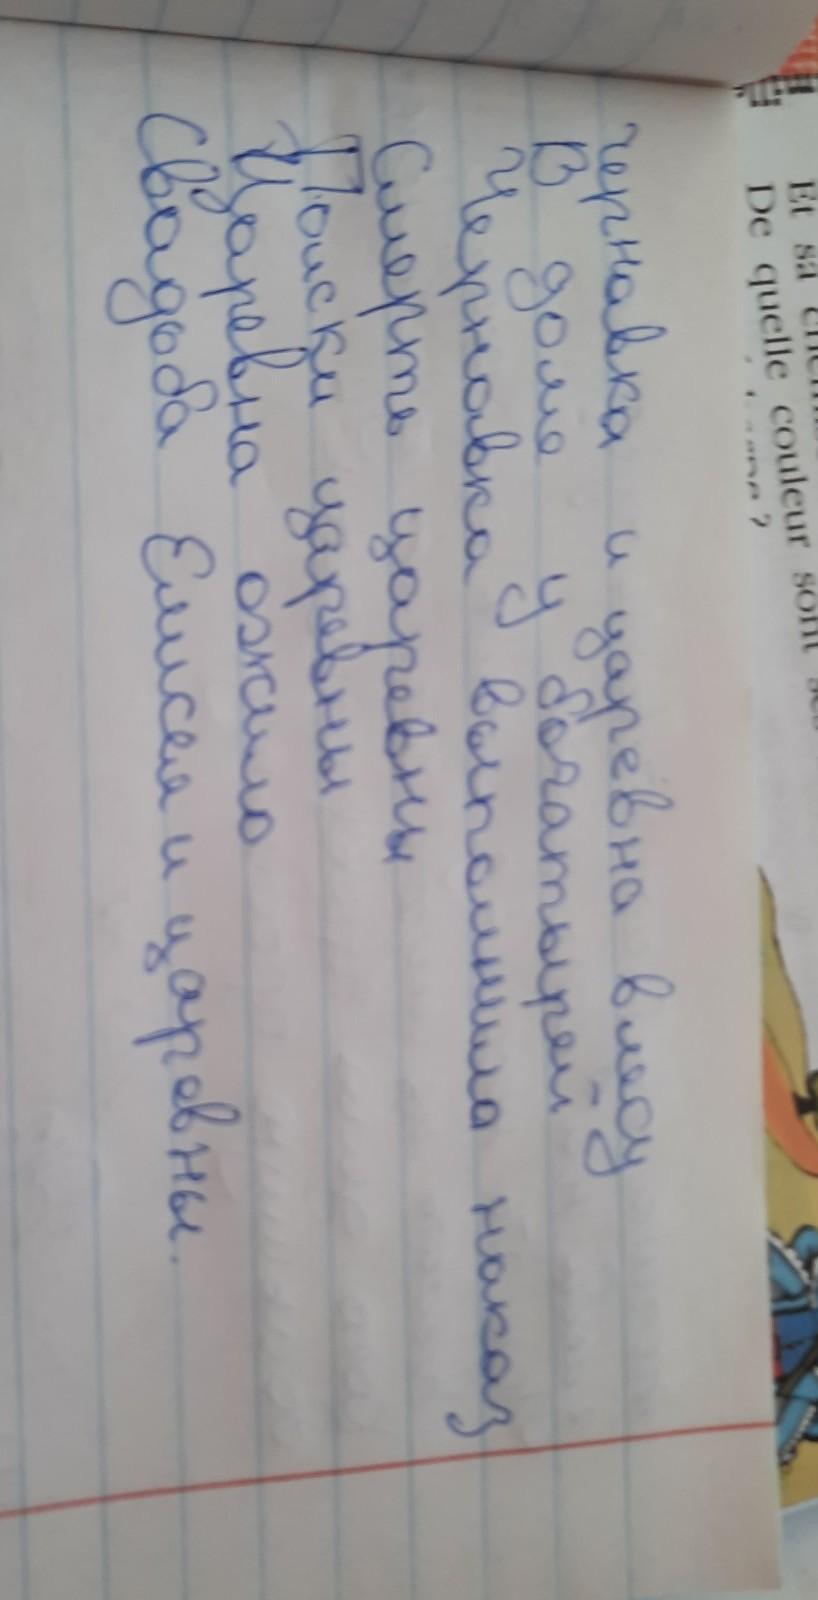 Et sa
De quelle couleur sont ses
чернавка и царевна влесу
В доме у богатырей
Чернавка выполнила наказ
Смерть царевны
Поиски царевны
Царевна ожила
Свадьба Елисея и царевны.